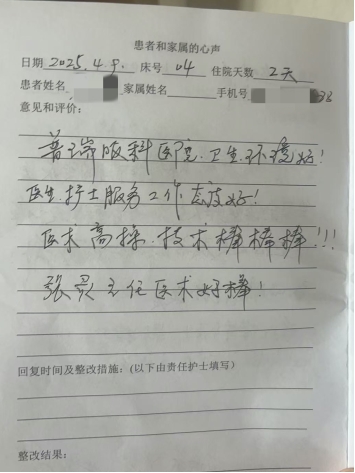 患者和家属的心声
日期 2025.4.9. 床号 04 住院天数 2天
患者姓名 家属姓名 手机号 33
意见和评价:
普瑞眼科医院.卫生.环境好!
医生.护士服务工作态度好!
医术高操.技术棒棒棒!!!
张 主任医术好棒!
回复时间及整改措施:(以下由责任护士填写)
整改结果: